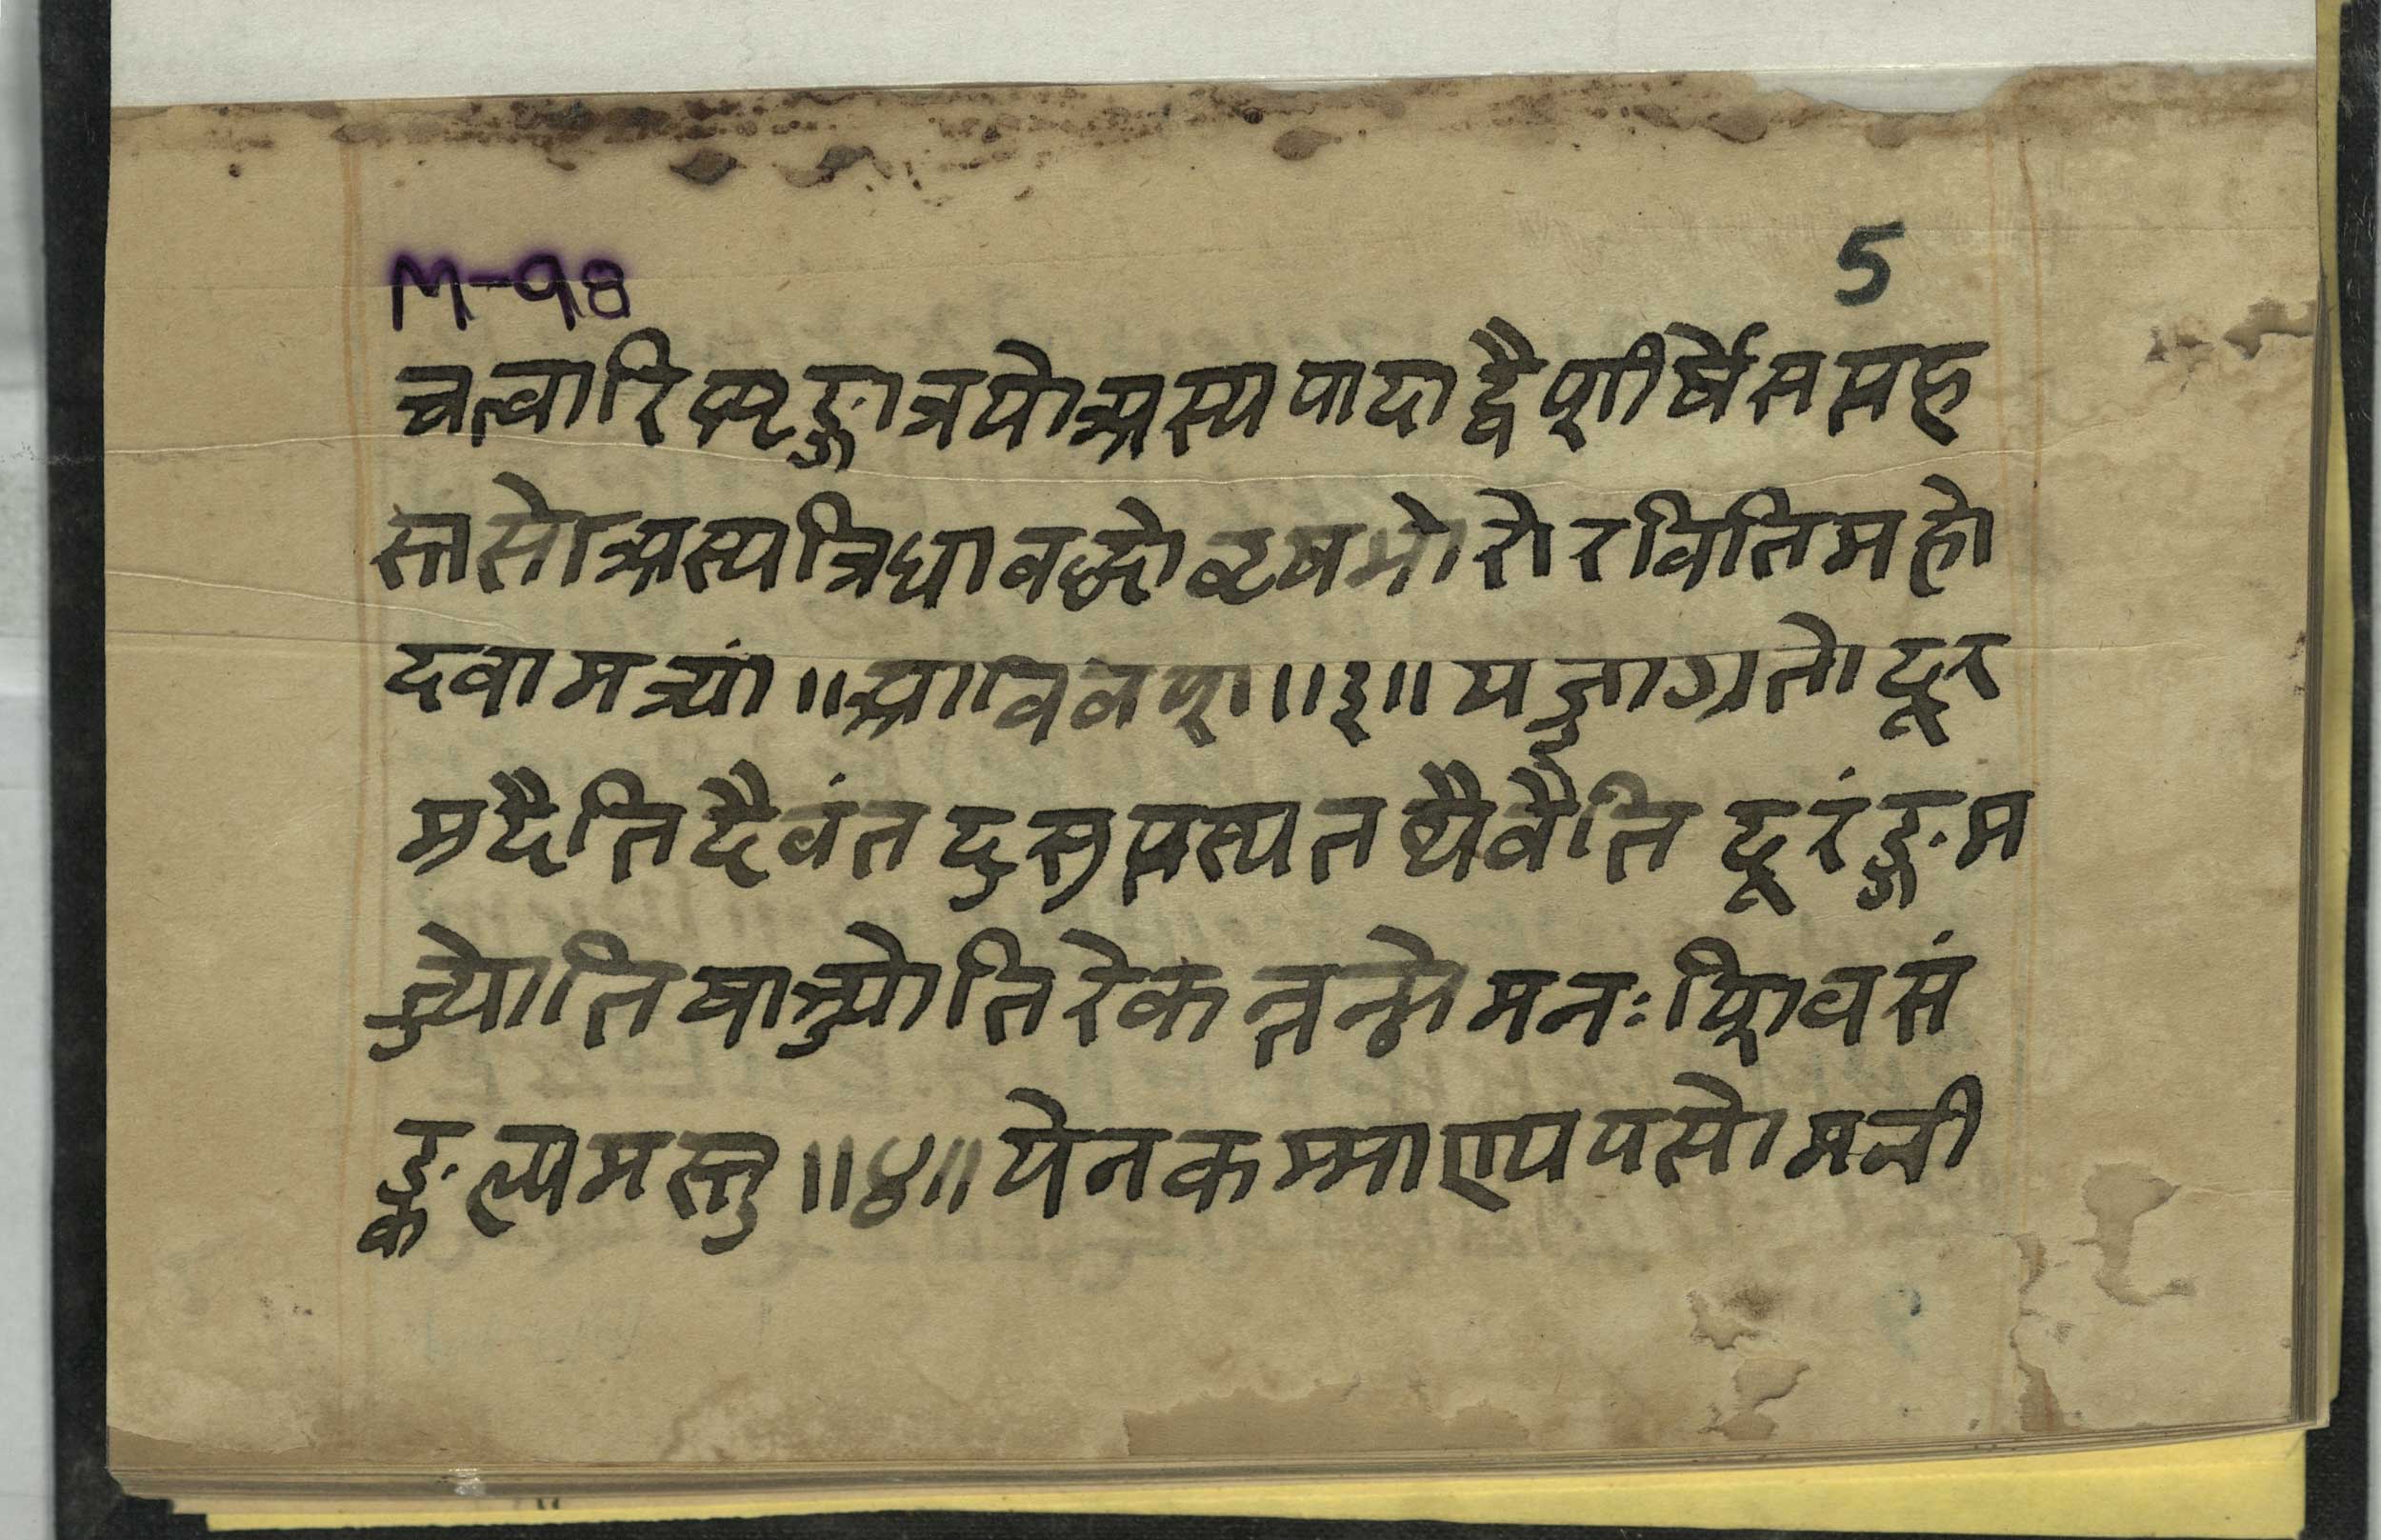 M-98
5
चत्वारिशृङ्गात्रयोअस्यपादाद्वैशीर्षेसप्तह
स्तासोअस्यत्रिधावद्धोवृषभोरोरवितिमहो
दवामर्त्यां॥आविवश॥॥३॥यज्जाग्रतोदूर
मुदैतिदैवंतदुसुप्तस्यतथैवैति दूरंङ्गम
ज्योतिषाञ्ज्योतिरेकन्तन्मेमनःशिवसं
ङ्कल्पमस्तु॥४॥येनकर्म्माण्यपसोमनी